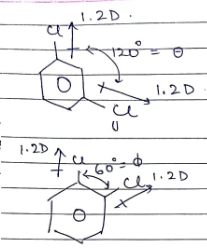 1.2D.
Cl
120° = θ
1.2D.
Cl
U
1.2D
Cl
60° = ϕ
Cl
1.2D